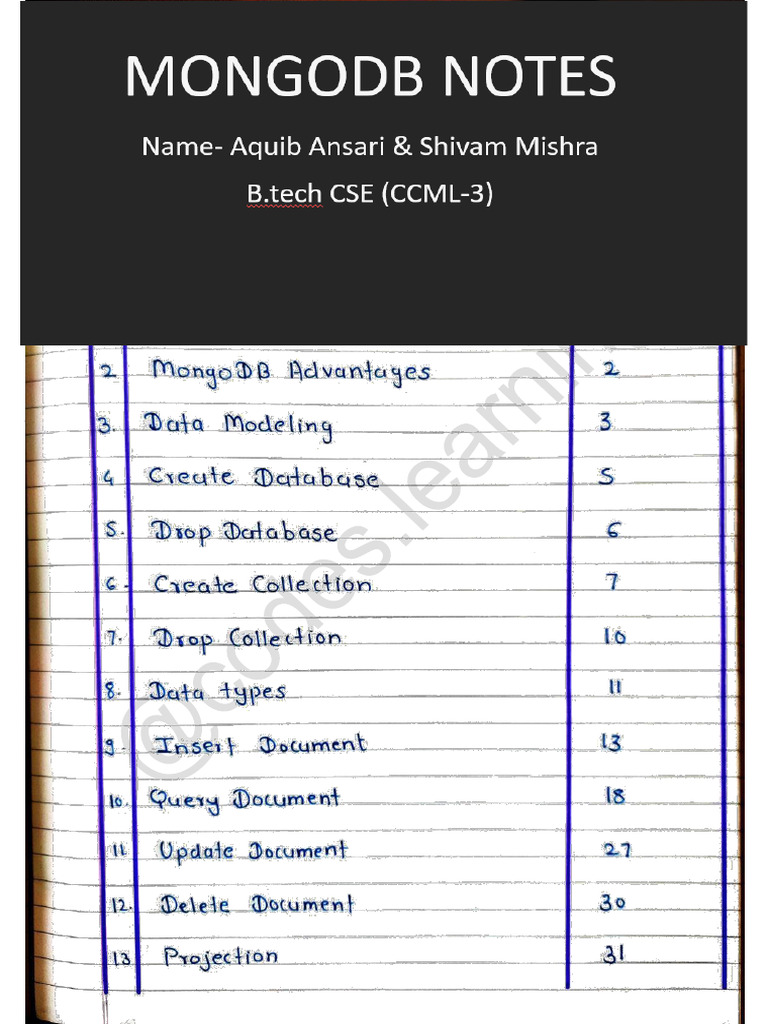 MONGODB NOTES
Name- Aquib Ansari & Shivam Mishra
B.tech CSE (CCML-3)
2 MongoDB Advantages 2
3. Data Modeling 3
4 Create Database 5
5. Drop Database 6
6- Create Collection 7
7. Drop Collection 10
8. Data types 11
9- Insert Document 13
10. Query Document 18
11 Update Document 27
12. Delete Document 30
13 Projection 31
@codes.learni